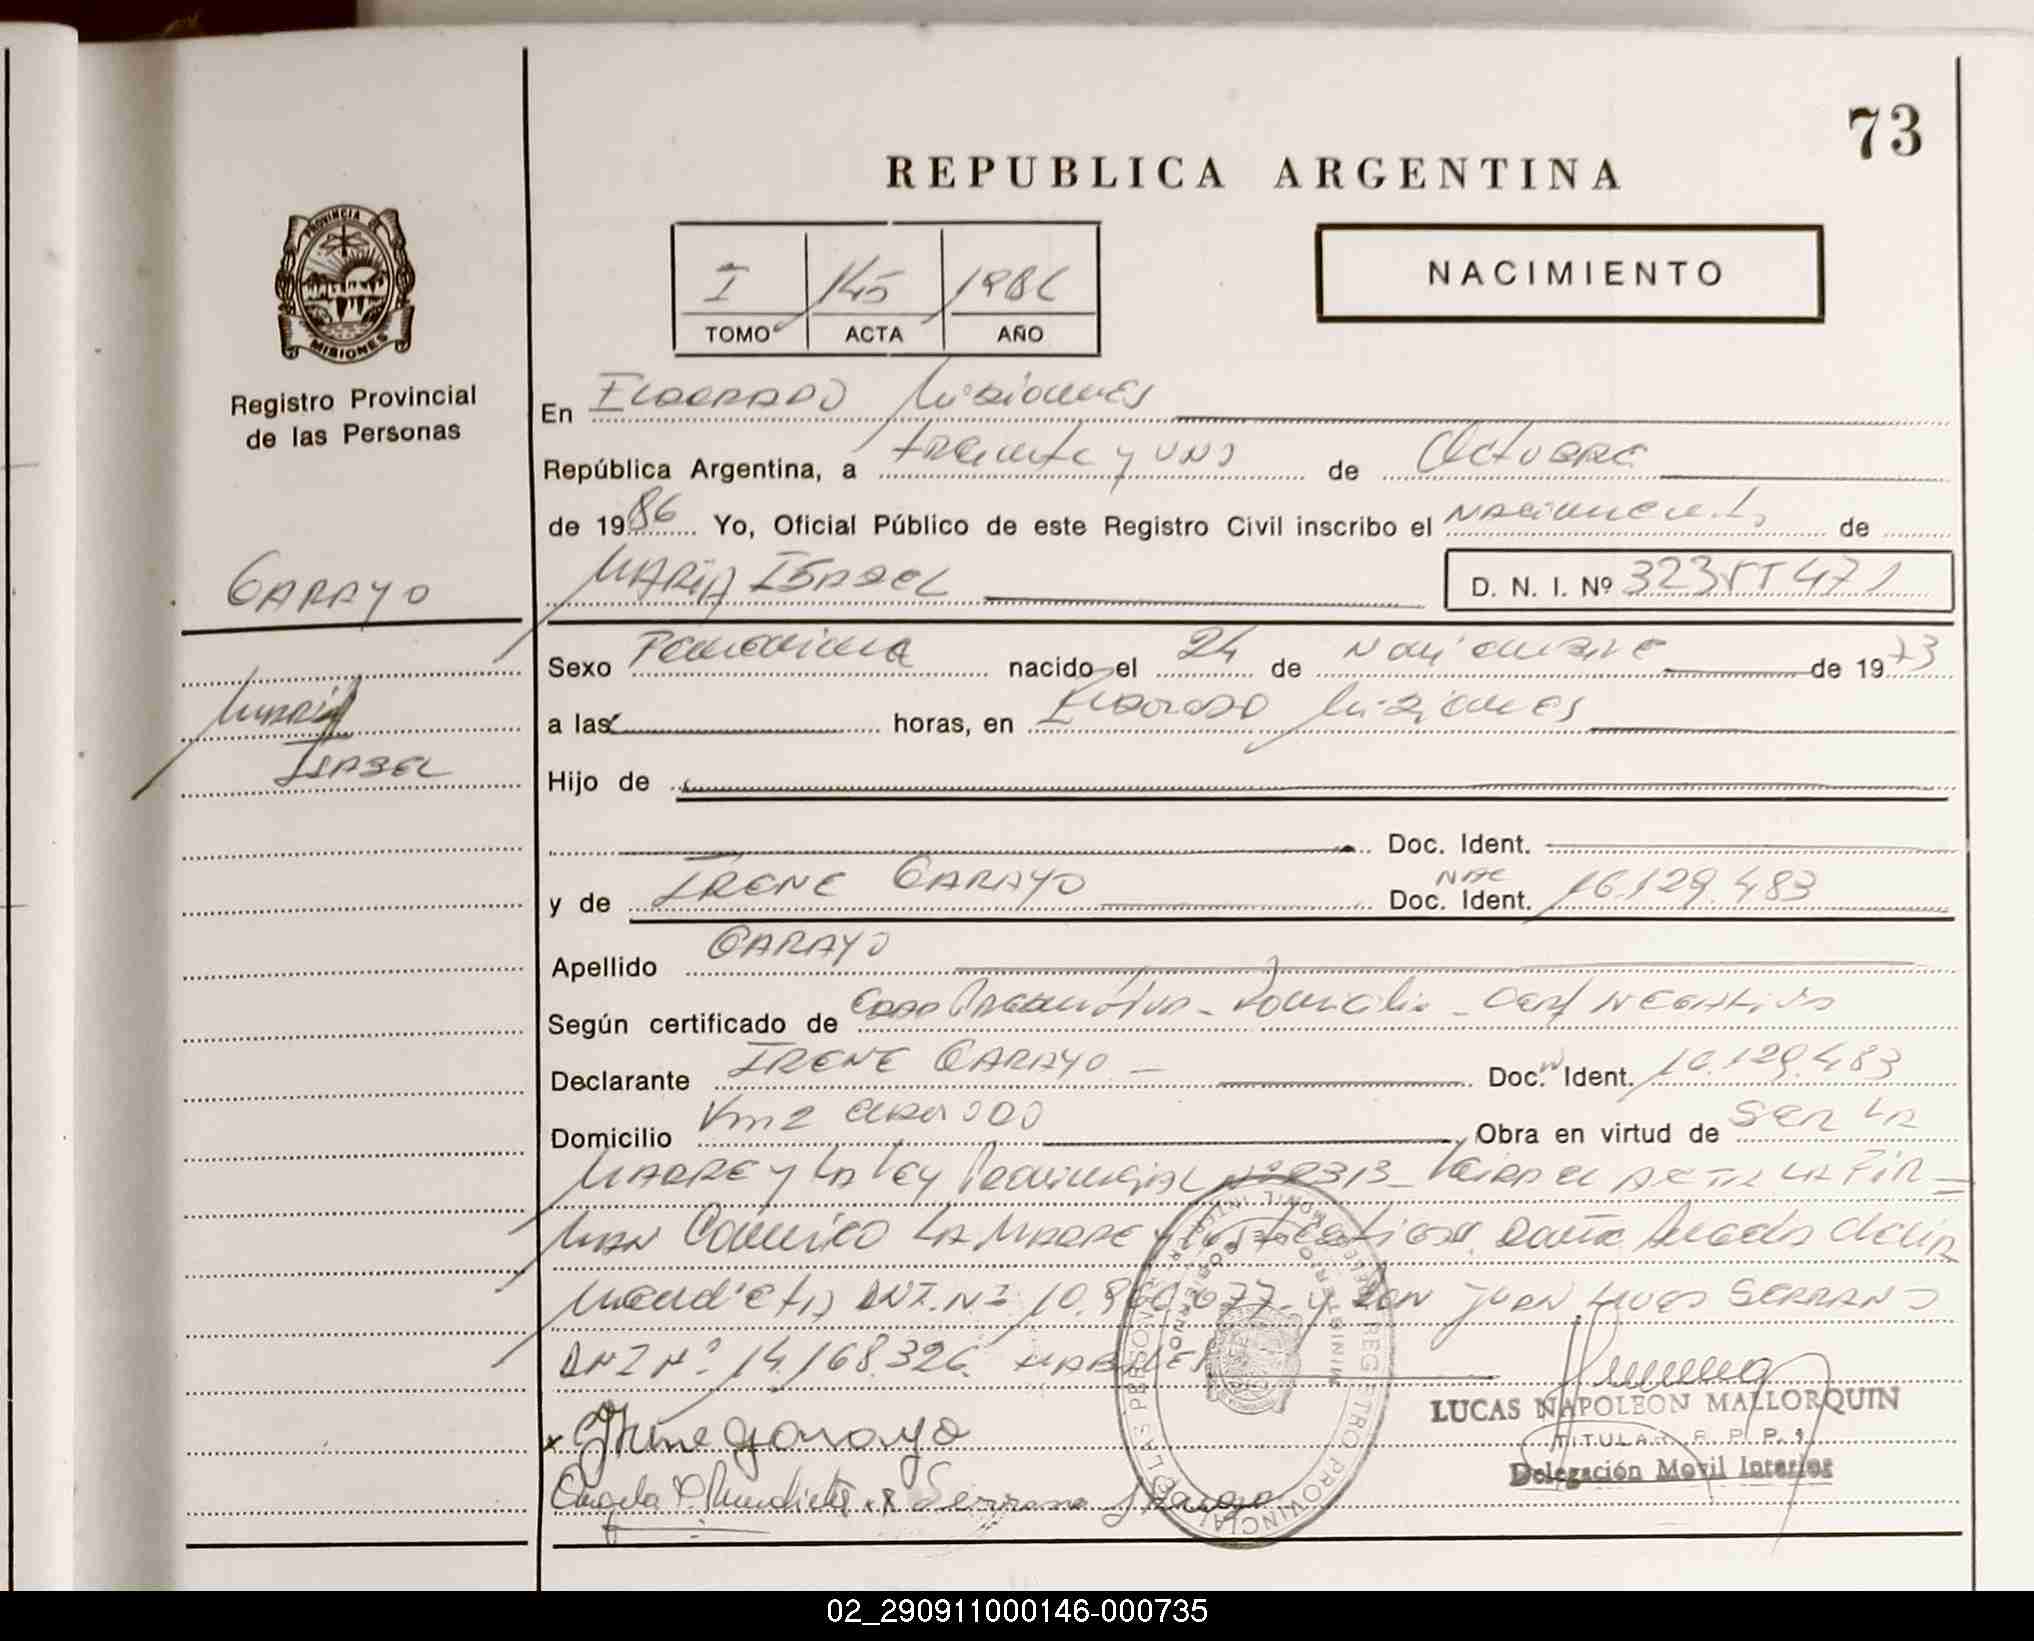 73
REPUBLICA ARGENTINA
PROVINCIA DE
MISIONES
Registro Provincial
de las Personas
I 145 1986
TOMO ACTA AÑO
NACIMIENTO
En ELDORADO Misiones
República Argentina, a treinta y uno de Octubre
de 1986 Yo, Oficial Público de este Registro Civil inscribo el nacimiento de
GARAYO
MARIA ISABEL D. N. I. Nº
Sexo Femenina nacido el 24 de Noviembre de 1973
MARIA
a las horas, en Eldorado Misiones
ISABEL
Hijo de
Doc. Ident.
y de IRENE GARAYO Doc. Ident. 16.129.483
Apellido GARAYO
Según certificado de Domicilio - Cert Negativo
Declarante IRENE GARAYO - Doc. Ident. 16.129.483
Domicilio Km 2 Eldorado Obra en virtud de SER LA
MADRE y LA Ley Provincial Nº 2313 - Leida el ACTA LA FIR=
MAN Conmigo LA MADRE y los testigos Doña
Mendieta DNI. Nº y Don JUAN SERRANO
DNI Nº 14.168.326. HABILES
Irene Garayo
LUCAS NAPOLEON MALLORQUIN
TITULAR R. P. P.
Delegación Movil Interior
Angela Mendieta Serrano
REGISTRO PROVINCIAL DE LAS PERSONAS
MINISTERIO DE GOBIERNO
02_290911000146-000735